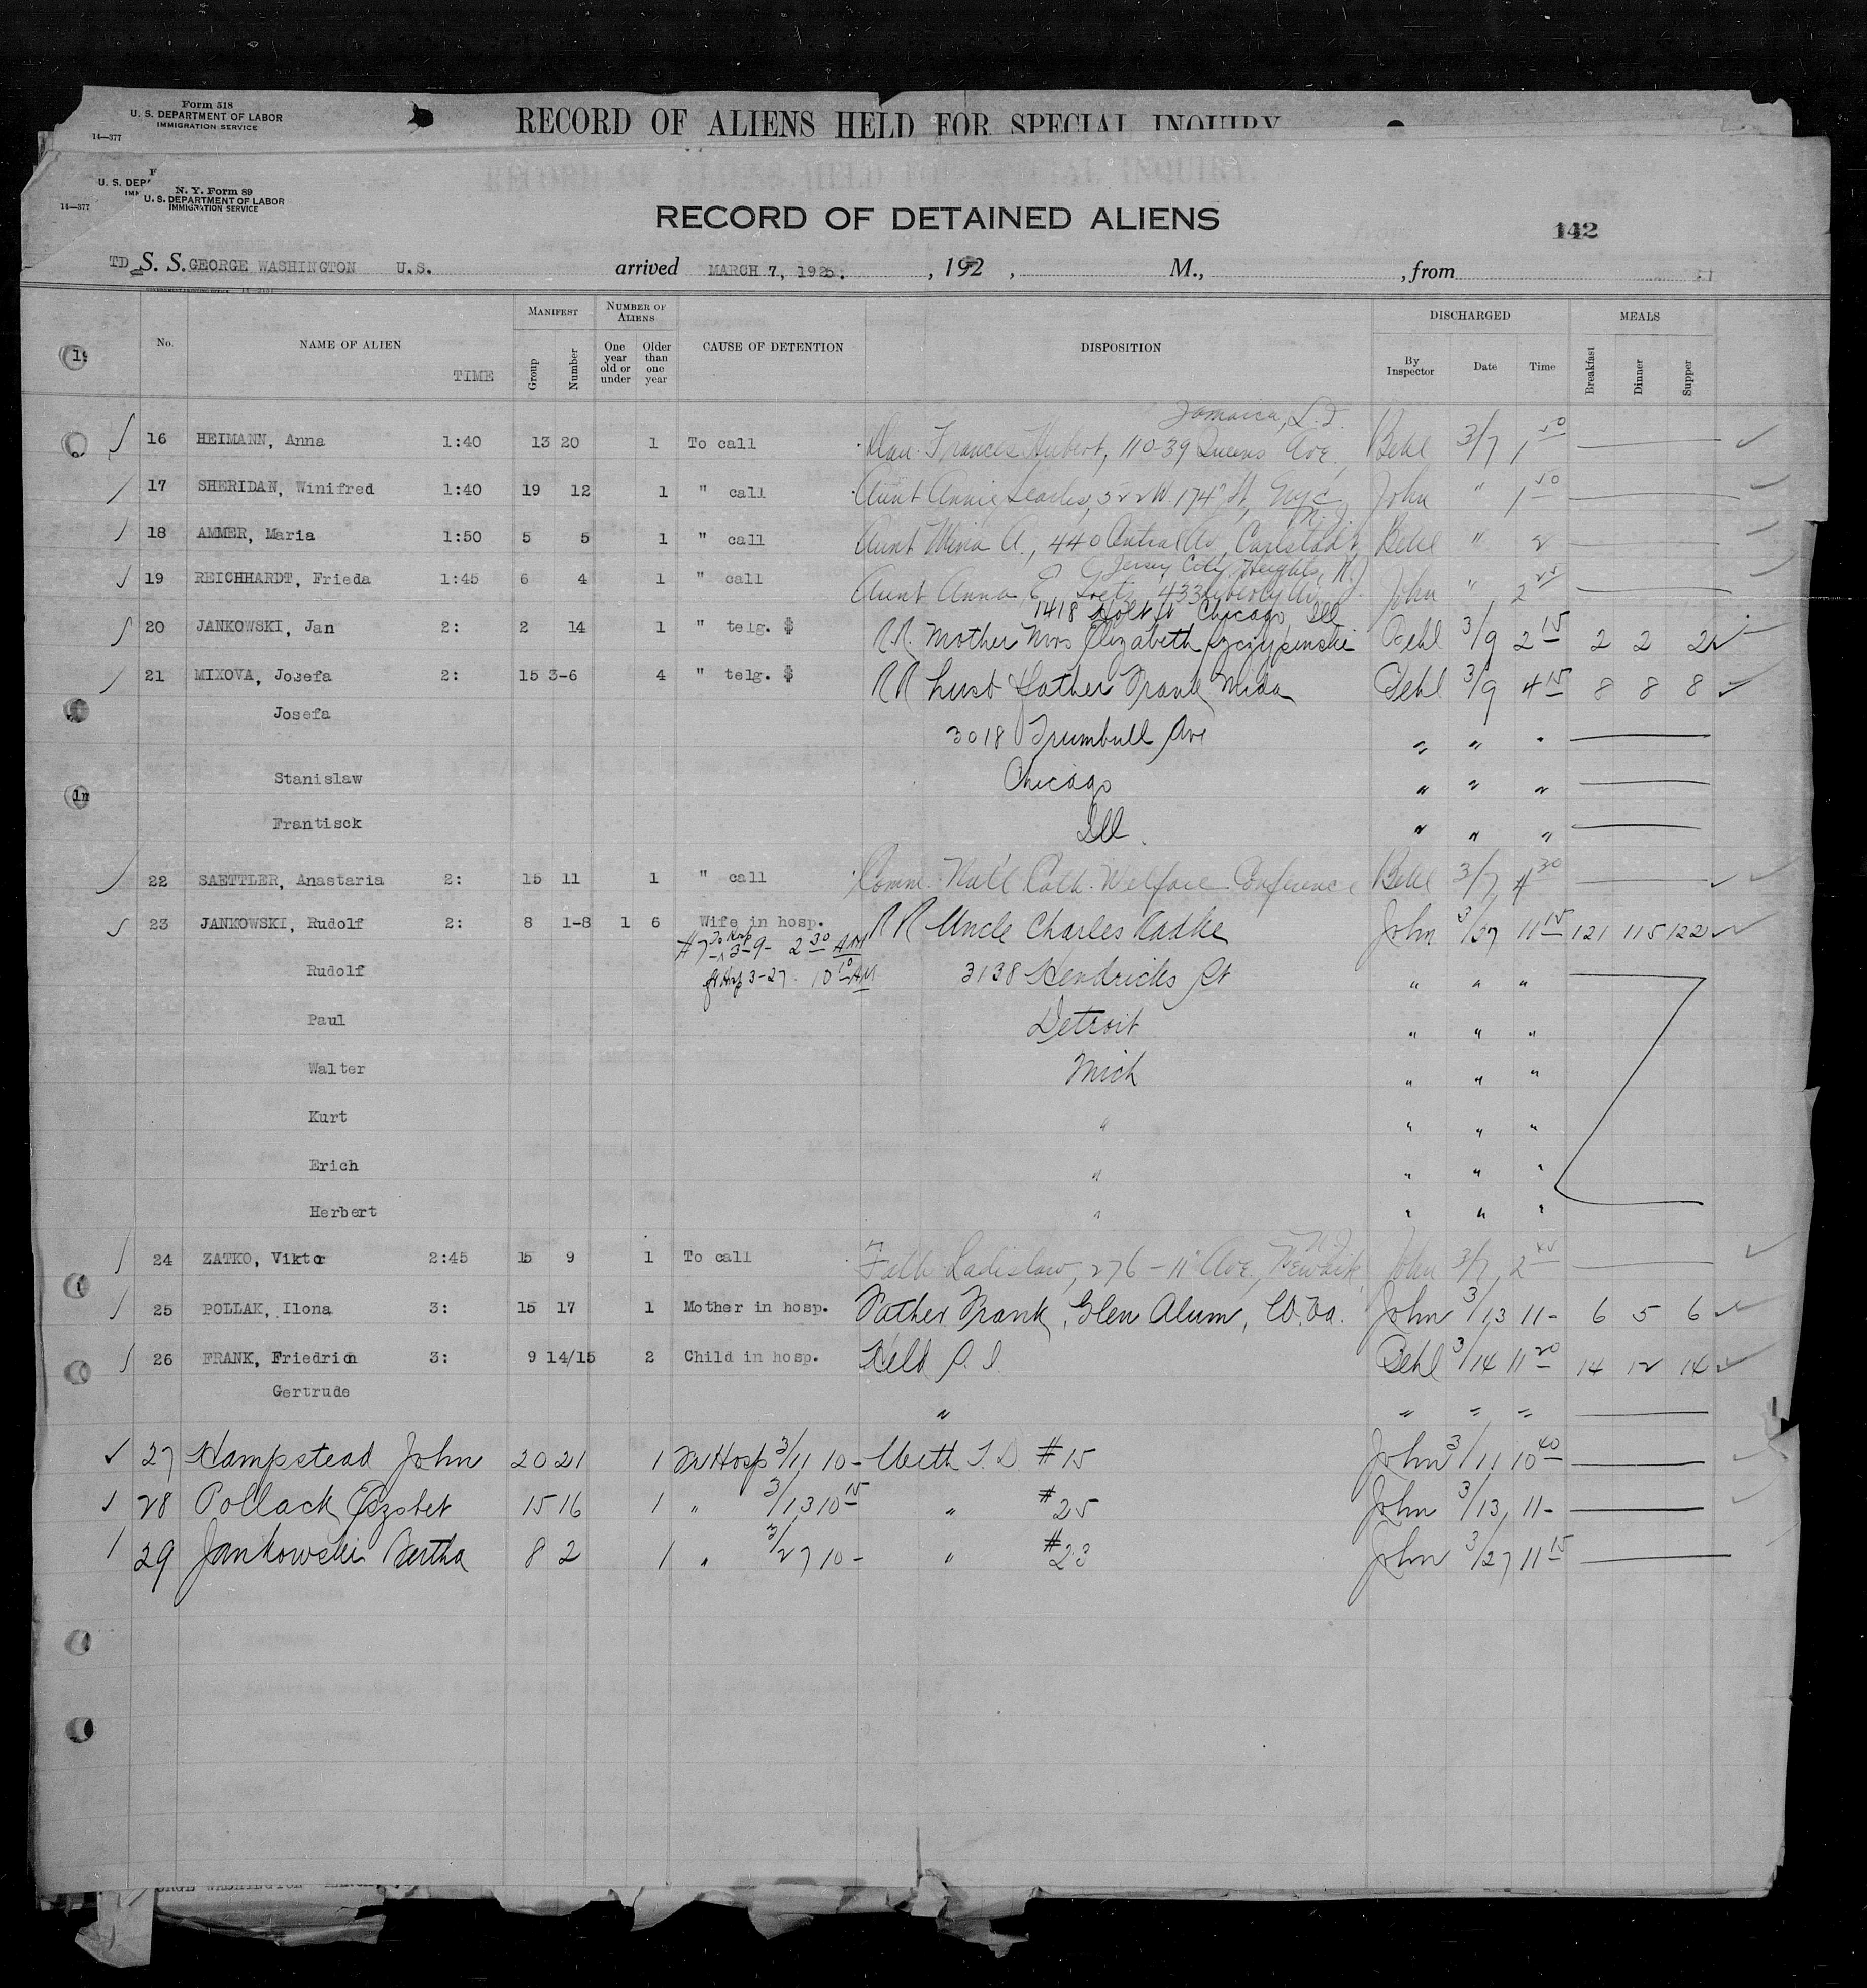 Form 518
U. S. DEPARTMENT OF LABOR
IMMIGRATION SERVICE
14—377
RECORD OF ALIENS HELD FOR SPECIAL INQUIRY
U. S. DEP
14—377
N. Y. Form 89
U. S. DEPARTMENT OF LABOR
IMMIGRATION SERVICE
RECORD OF DETAINED ALIENS
142
TD S. S. GEORGE WASHINGTON U.S. arrived MARCH 7, 1925. , 192 , M., , from
No. NAME OF ALIEN TIME MANIFEST Group Number NUMBER OF ALIENS One year old or under Older than one year CAUSE OF DETENTION DISPOSITION DISCHARGED By Inspector Date Time MEALS Breakfast Dinner Supper
Jamaica, L.I.
16 HEIMANN, Anna 1:40 13 20 1 To call Frances Hubert, 110-39 Queens Ave, Behl 3/7 1 50
17 SHERIDAN, Winifred 1:40 19 12 1 " call Aunt Annie Searles, 522 W. 174 St, NYC John " 1 50
18 AMMER, Maria 1:50 5 5 1 " call Aunt Mina A., 440 Central Av, Carlstadt, N.J. Behl " 2
Jersey City Heights, N.J.
19 REICHHARDT, Frieda 1:45 6 4 1 " call Aunt Anna 433 Liberty Av John " 2
1418 Holt St Chicago, Ill
20 JANKOWSKI, Jan 2: 2 14 1 " telg. $ RR Mother Mrs Elizabeth Behl 3/9 2 15 2 2 2
21 MIXOVA, Josefa 2: 15 3-6 4 " telg. $ RR husb Father Frank Behl 3/9 4 15 8 8 8
Josefa 3018 Trumbull Ave " " "
Stanislaw Chicago " " "
Frantisek Ill. " " "
22 SAETTLER, Anastaria 2: 15 11 1 " call Comm. Nat'l Cath. Welfare Conference Behl 3/7 4 30
23 JANKOWSKI, Rudolf 2: 8 1-8 1 6 Wife in hosp. RR Uncle Charles Radke John 3/27 11 15 121 115 122
#7 To Hosp 3-9- 2 30 AM
Rudolf fr Hosp 3-27. 10 10 AM 3138 Hendricks St " " "
Paul Detroit " " "
Walter Mich " " "
Kurt " " " "
Erich " " " "
Herbert " " " "
24 ZATKO, Viktor 2:45 15 9 1 To call Fath Ladislaw, 276 - 11 Ave, Newark N.J. John 3/7, 2 45
25 POLLAK, Ilona 3: 15 17 1 Mother in hosp. Father Frank, Glen Alum, W. Va. John 3/13 11- 6 5 6
26 FRANK, Friedrich 3: 9 14/15 2 Child in hosp. Held S. I. Behl 3/14 11 20 14 12 14
Gertrude " " " "
27 Hampstead John 20 21 1 Fr Hosp 3/11 10- With T.D. #15 John 3/11 10 40
28 Pollack Erzsbet 15 16 1 " 3/13 10 15 " #25 John 3/13, 11-
29 Jankowski Bertha 8 2 1 " 3/27 10- " #23 John 3/27 11 15